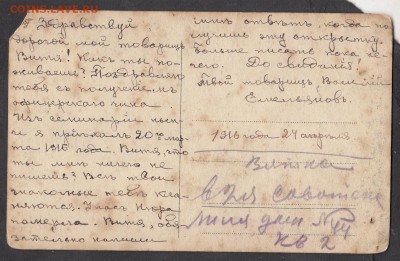 Здравствуй
дорогой мой товарищъ
Витя! Какъ ты по-
живаешь? Поздравляю
тебя съ полученiемъ
офицерскаго чина
Изъ семинарiи нын-
че я прiѣхалъ 20го мар-
та 1916 года. Витя, что
ты мнѣ ничего не
пишешь? Всѣ твои
знакомые тебѣ кла-
няются. У насъ
померла. Витя, обя-
зательно напиши
отвѣтъ, когда по-
лучишь эту открытку.
Больше писать пока не-
чего. До свиданiя!
Твой товарищъ
Емельяновъ.
1916 года 24 апрѣля
Вятка
2я
линiя домъ №44
кв 2
COINS.LAVE.RU